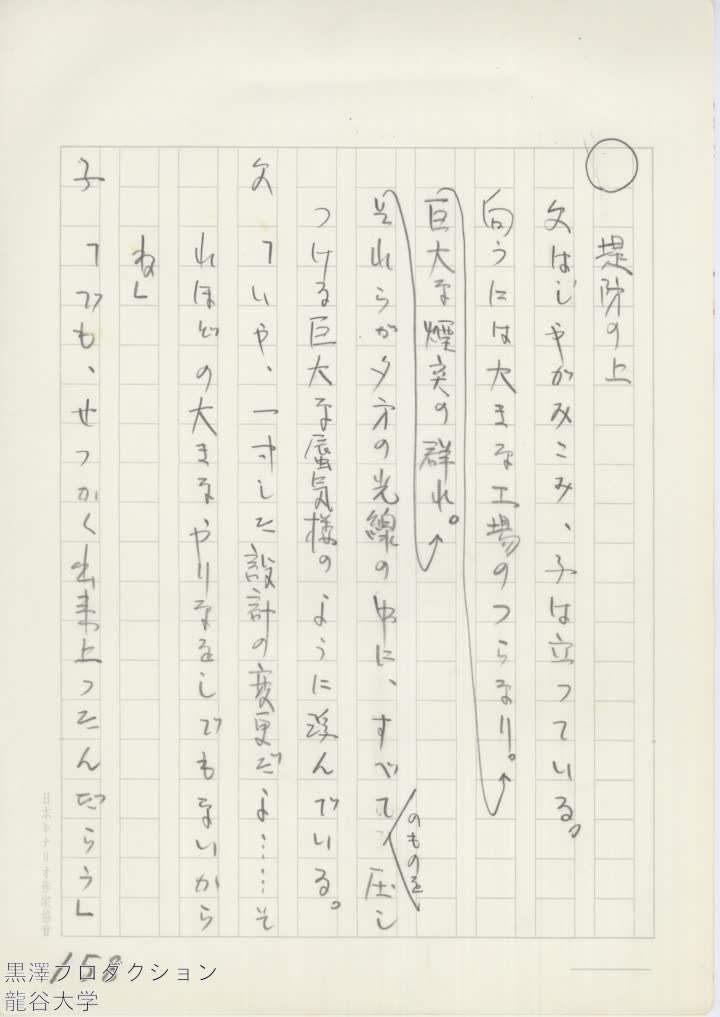 ○ 堤防の上
父はしやがみこみ、子は立つている。
向うには大きな工場のつらなり。
巨大な煙突の群れ。
それらが夕方の光線の中に、すべてのものを圧し
つける巨大な蜃気樓のように浮んでいる。
父「いや、一寸した設計の変更だよ……そ
れほどの大きなやりなをしでもないから
ね」
子「でも、せつかく出来上つたんだらう」
日本シナリオ作家協會
158
黒澤プロダクション
龍谷大学